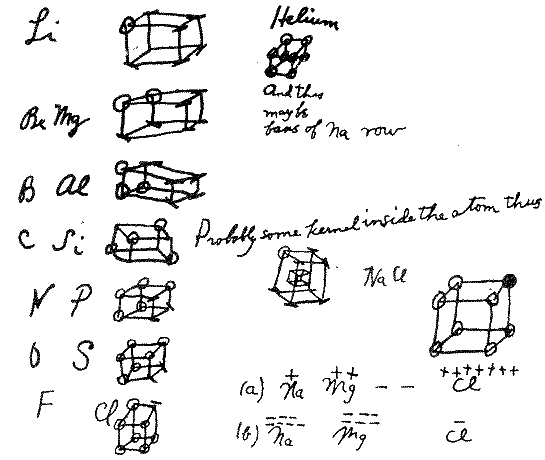 Li
Helium
And this
maybe
basis of Na row
Be Mg
B Al
C Si
Probably some kernel inside the atom thus
N P
NaCl
O S
F Cl
+++++++
(a) Na + Mg ++ - - Cl
(b) Na Mg Cl